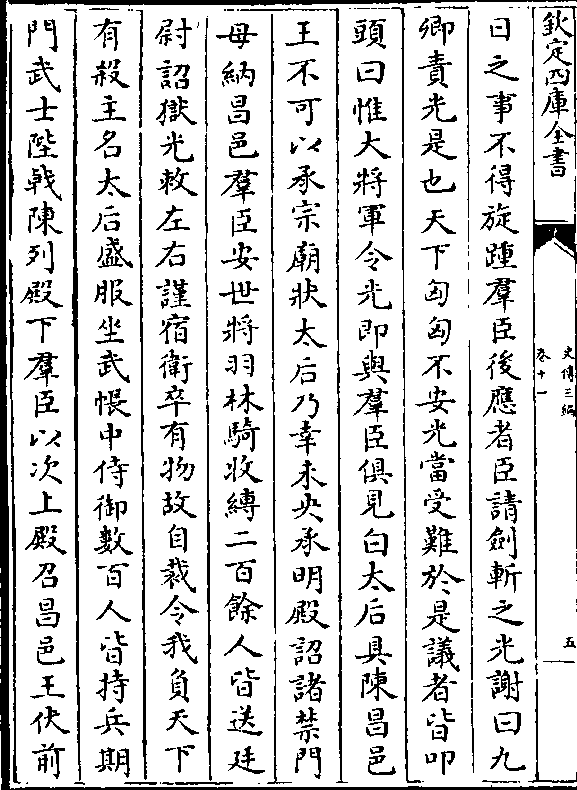 欽定四庫全書
史傳三編
卷十一
五
日之事不得旋踵羣臣後應者臣請劍斬之光謝曰九
卿責光是也天下匈匈不安光當受難於是議者皆叩
頭曰惟大將軍令光即與羣臣俱見白太后具陳昌邑
王不可以承宗廟狀太后乃幸未央承明殿詔諸禁門
毋納昌邑羣臣安世將羽林騎收縛二百餘人皆送廷
尉詔獄光敕左右謹宿衛卒有物故自裁令我負天下
有殺主名太后盛服坐武帳中侍御數百人皆持兵期
門武士陛戟陳列殿下羣臣以次上殿召昌邑王伏前